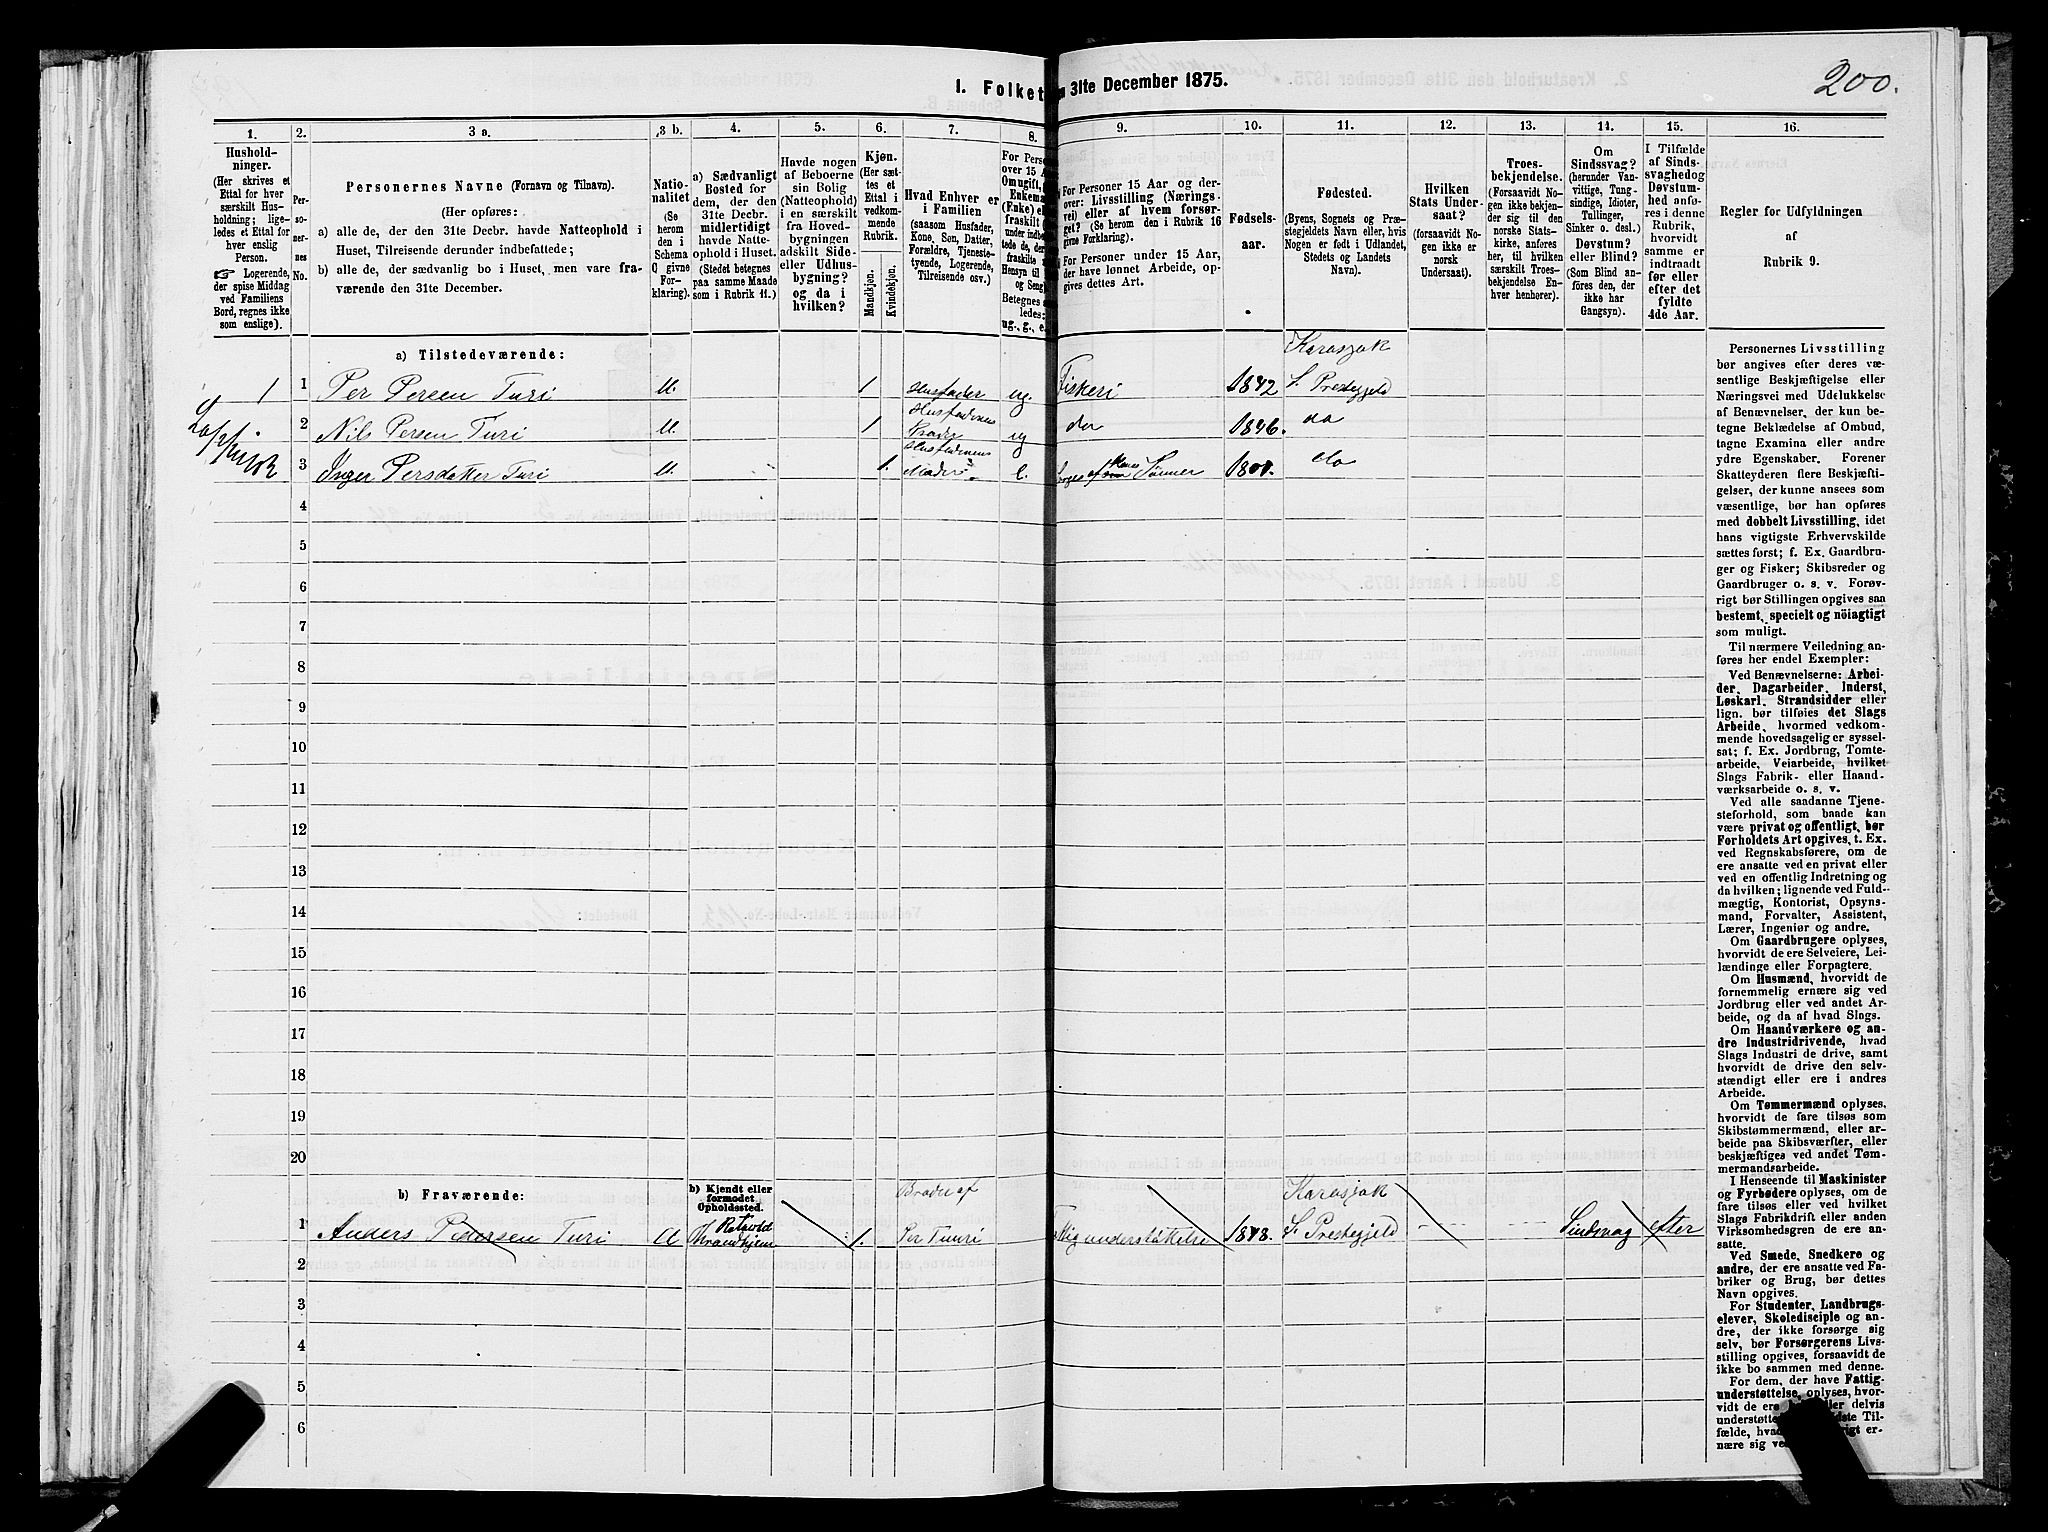 200.
I. Folket
n 31te December 1875.
1.
2.
3 a.
3 b.
4.
5.
6.
7.
8.
9.
10.
11.
12.
13.
14.
15.
16.
Hushold-
ninger.
(Her skrives et
Ettal for hver
særskilt Hus-
holdning; lige-
ledes et Ettal for
hver enslig
Person.
☞ Logerende,
der spise Middag
ved Familiens
Bord, regnes ikke
som enslige).
Per-
so-
ner-
nes
No.
Personernes Navne (Fornavn og Tilnavn).
(Her opføres:
a) alle de, der den 31te Decbr. havde Natteophold i
Huset, Tilreisende derunder indbefattede;
b) alle de, der sædvanlig bo i Huset, men vare fra-
værende den 31te December.
Natio-
nalitet
(Se
herom
den i
Schema
C givne
For-
klaring).
a) Sædvanligt
Bosted for
dem, der den
31te Decbr.
midlertidigt
havde Natte-
ophold i Huset.
(Stedet betegnes
paa samme Maade
som i Rubrik 11.)
Havde nogen
af Beboerne
sin Bolig
(Natteophold)
i en særskilt
fra Hoved-
bygningen
adskilt Side-
eller Udhus-
bygning?
og da i
hvilken?
Kjøn.
(Her sæt-
tes et
Ettal i
vedkom-
mende
Rubrik.
Mandkjøn.
Kvindekjøn.
Hvad Enhver er
i Familien
(saasom Husfader,
Kone, Søn, Datter,
Forældre, Tjeneste-
tyende, Logerende,
Tilreisende osv.)
For Perso
over 15 A
Omugift,
Enkema
(Enke) el
fraskilt
under indb
tede de, de
fraskilte
Hensyn til
og Seng
Betegnes
ledes:
ug., g., e.
For Personer 15 Aar og der-
over: Livsstilling (Nærings-
vei) eller af hvem forsør-
get? (Se herom den i Rubrik 16
givne Forklaring).
For Personer under 15 Aar,
der have lønnet Arbeide, op-
gives dettes Art.
Fødsels-
aar.
Fødested.
(Byens, Sognets og Præ-
stegjeldets Navn eller, hvis
Nogen er født i Udlandet,
Stedets og Landets
Navn).
Hvilken
Stats Under-
saat?
(forsaavidt No-
gen ikke er
norsk
Undersaat).
Troes-
bekjendelse.
(Forsaavidt No-
gen ikke bekjen-
der sig til den
norske Stats-
kirke, anføres
her, til hvilken
særskilt Troes-
bekjendelse En-
hver henhører).
Om
Sindssvag?
(herunder Van-
vittige, Tung-
sindige, Idioter,
Tullinger,
Sinker o. desl.)
Døvstum?
eller Blind?
(Som Blind an-
føres den, der
ikke har
Gangsyn).
I Tilfælde
af Sinds-
svaghedog
Døvstum-
hed anfø-
res i denne
Rubrik,
hvorvidt
samme er
indtraadt
før eller
efter det
fyldte
4de Aar.
Regler for Udfyldningen
af
Rubrik 9.
a) Tilstedeværende:
Karasjok
1 1 Per Persen Turi 1 Husfader ug. Fiskeri 1842 S. Prestegjeld
Husfaderens
2 Nils Persen Turi 1 Broder ug do 1846. do
Husfaderens
3 Inger Persdatter Turi 1. Moder e. af Sønner do
4
5
6
7
8
9
10
11
12
13
14
15
16
17
18
19
20
b) Fraværende:
b) Kjendt eller
formodet
Opholdssted.
Broder af
Karasjok
Rotvold
1 Anders Pedersen Turi Trondhjem 1. Per Tuuri 1848. S. Prestegjeld Sindsvag efter
2
3
4
5
6
Personernes Livsstilling
bør angives efter deres væ-
sentlige Beskjæftigelse eller
Næringsvei med Udelukkelse
af Benævnelser, der kun be-
tegne Beklædelse af Ombud,
tagne Examina eller andre
ydre Egenskaber. Forener
Skatteyderen flere Beskjæfti-
gelser, der kunne ansees som
væsentlige, bør han opføres
med dobbelt Livsstilling, idet
hans vigtigste Erhvervskilde
sættes først; f. Ex. Gaardbru-
ger og Fisker; Skibsreder og
Gaardbruger o. s. v. Forøv-
rigt bør Stillingen opgives saa
bestemt, specielt og nöiagtigt
som muligt.
Til nærmere Veiledning an-
føres her endel Exempler:
Ved Benævnelserne: Arbei-
der, Dagarbeider, Inderst,
Løskarl, Strandsidder eller
lign. bør tilføies det Slags
Arbeide, hvormed vedkom-
mende hovedsagelig er syssel-
sat; f. Ex. Jordbrug, Tomte-
arbeide, Veiarbeide, hvilket
Slags Fabrik- eller Haand-
værksarbeide o. s. v.
Ved alle saadanne Tjene-
steforhold, som baade kan
være privat og offentligt, bør
Forholdets Art opgives, t. Ex.
ved Regnskabsførere, om de
ere ansatte ved en privat eller
ved en offentlig Indretning og
da hvilken; lignende ved Fuld-
mægtig, Kontorist, Opsyns-
mand, Forvalter, Assistent,
Lærer, Ingeniør og andre.
Om Gaardbrugere oplyses,
hvorvidt de ere Selveiere, Lei-
lændinge eller Forpagtere.
Om Husmænd, hvorvidt de
fornemmelig ernære sig ved
Jordbrug eller ved andet Ar-
beide, og da af hvad Slags.
Om Haandværkere og an-
dre Industridrivende, hvad
Slags Industri de drive, samt
hvorvidt de drive den selv-
stændigt eller ere i andres
Arbeide.
Om Tømmermænd oplyses,
hvorvidt de fare tilsøs som
Skibstømmermænd, eller ar-
beide paa Skibsværfter, eller
beskjæftiges ved andet Tøm-
mermandsarbeide.
I Henseende til Maskinister
og Fyrbødere oplyses, om de
fare tilsøs eller ved hvilket
Slags Fabrikdrift eller anden
Virksomhedsgren de ere an-
satte.
Ved Smede, Snedkere og
andre, der ere ansatte ved Fa-
briker og Brug, bør dettes
Navn opgives.
For Studenter, Landbrugs-
elever, Skoledisciple og an-
dre, der ikke forsørge sig
selv, bør Forsørgerens Livs-
stilling opgives, forsaavidt de
ikke bo sammen med denne.
For dem, der have Fattig-
understøttelse, oplyses, hvor-
vidt de ere eller delvis